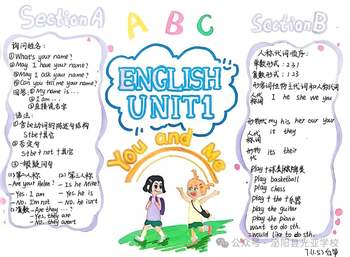 Section A
A B C
Section B
询问姓名:
①What's your name?
②May I have your name?
③May I ask your name?
④Can you tell me your name?
回答: ①My name is...
②I am ...
③直接说名字
语法:
①含be动词的陈述句结构
S+be+其它
②否定句
S+be+not+其它
③一般疑问句
(1)第二人称
Are your Helen?
Yes, I am
No, I'm not
(2)第三人称
Is he Mike?
Yes, he is
No, he isn't
(3)复数
Are they ~?
Yes, they are
No, they aren't
ENGLISH
UNIT1
You and Me
人称代词顺序:
单数形式: 231
复数形式: 123
形容词性物主代词和人称代词
人称代词 I he she we you it they
物代 my his her our your its their
play+球类/棋类
play basketball
play chess
play + the +乐器
play the guitar
play the piano
want to do sth.
would like to do sth.
公众号·泌阳县光亚学校